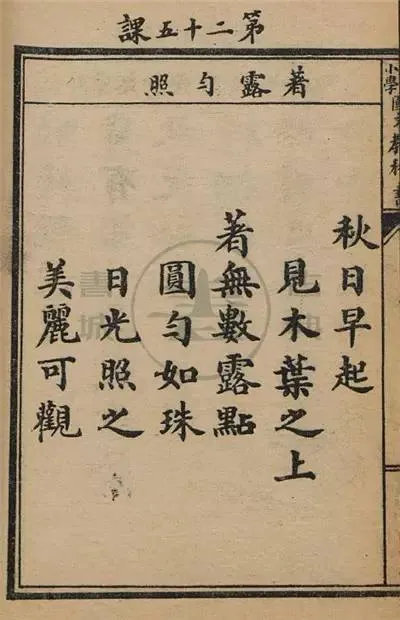 第二十五課
著露勻照
秋日早起
見木葉之上
著無數露點
圓勻如珠
日光照之
美麗可觀